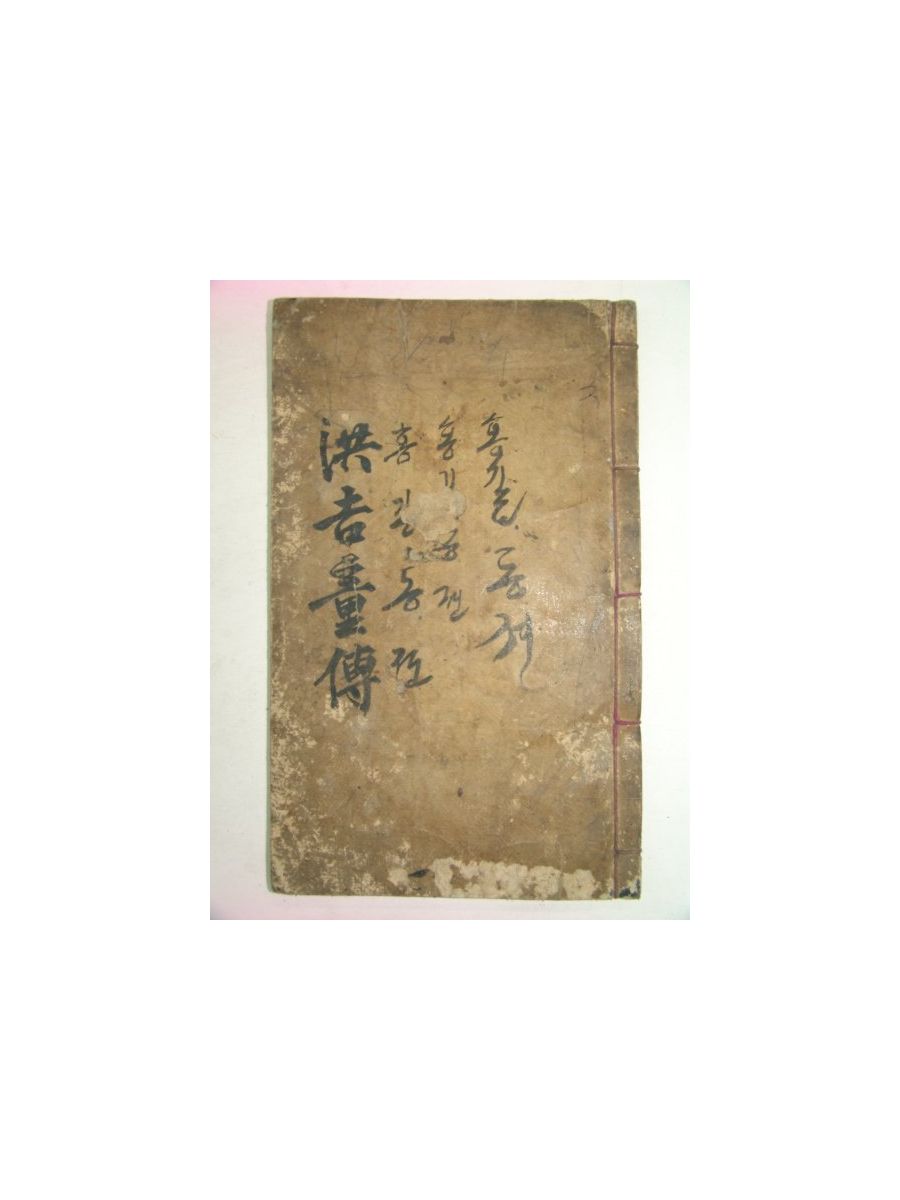 홍길동젼
홍기동젼
홍길동젼
洪吉童傳